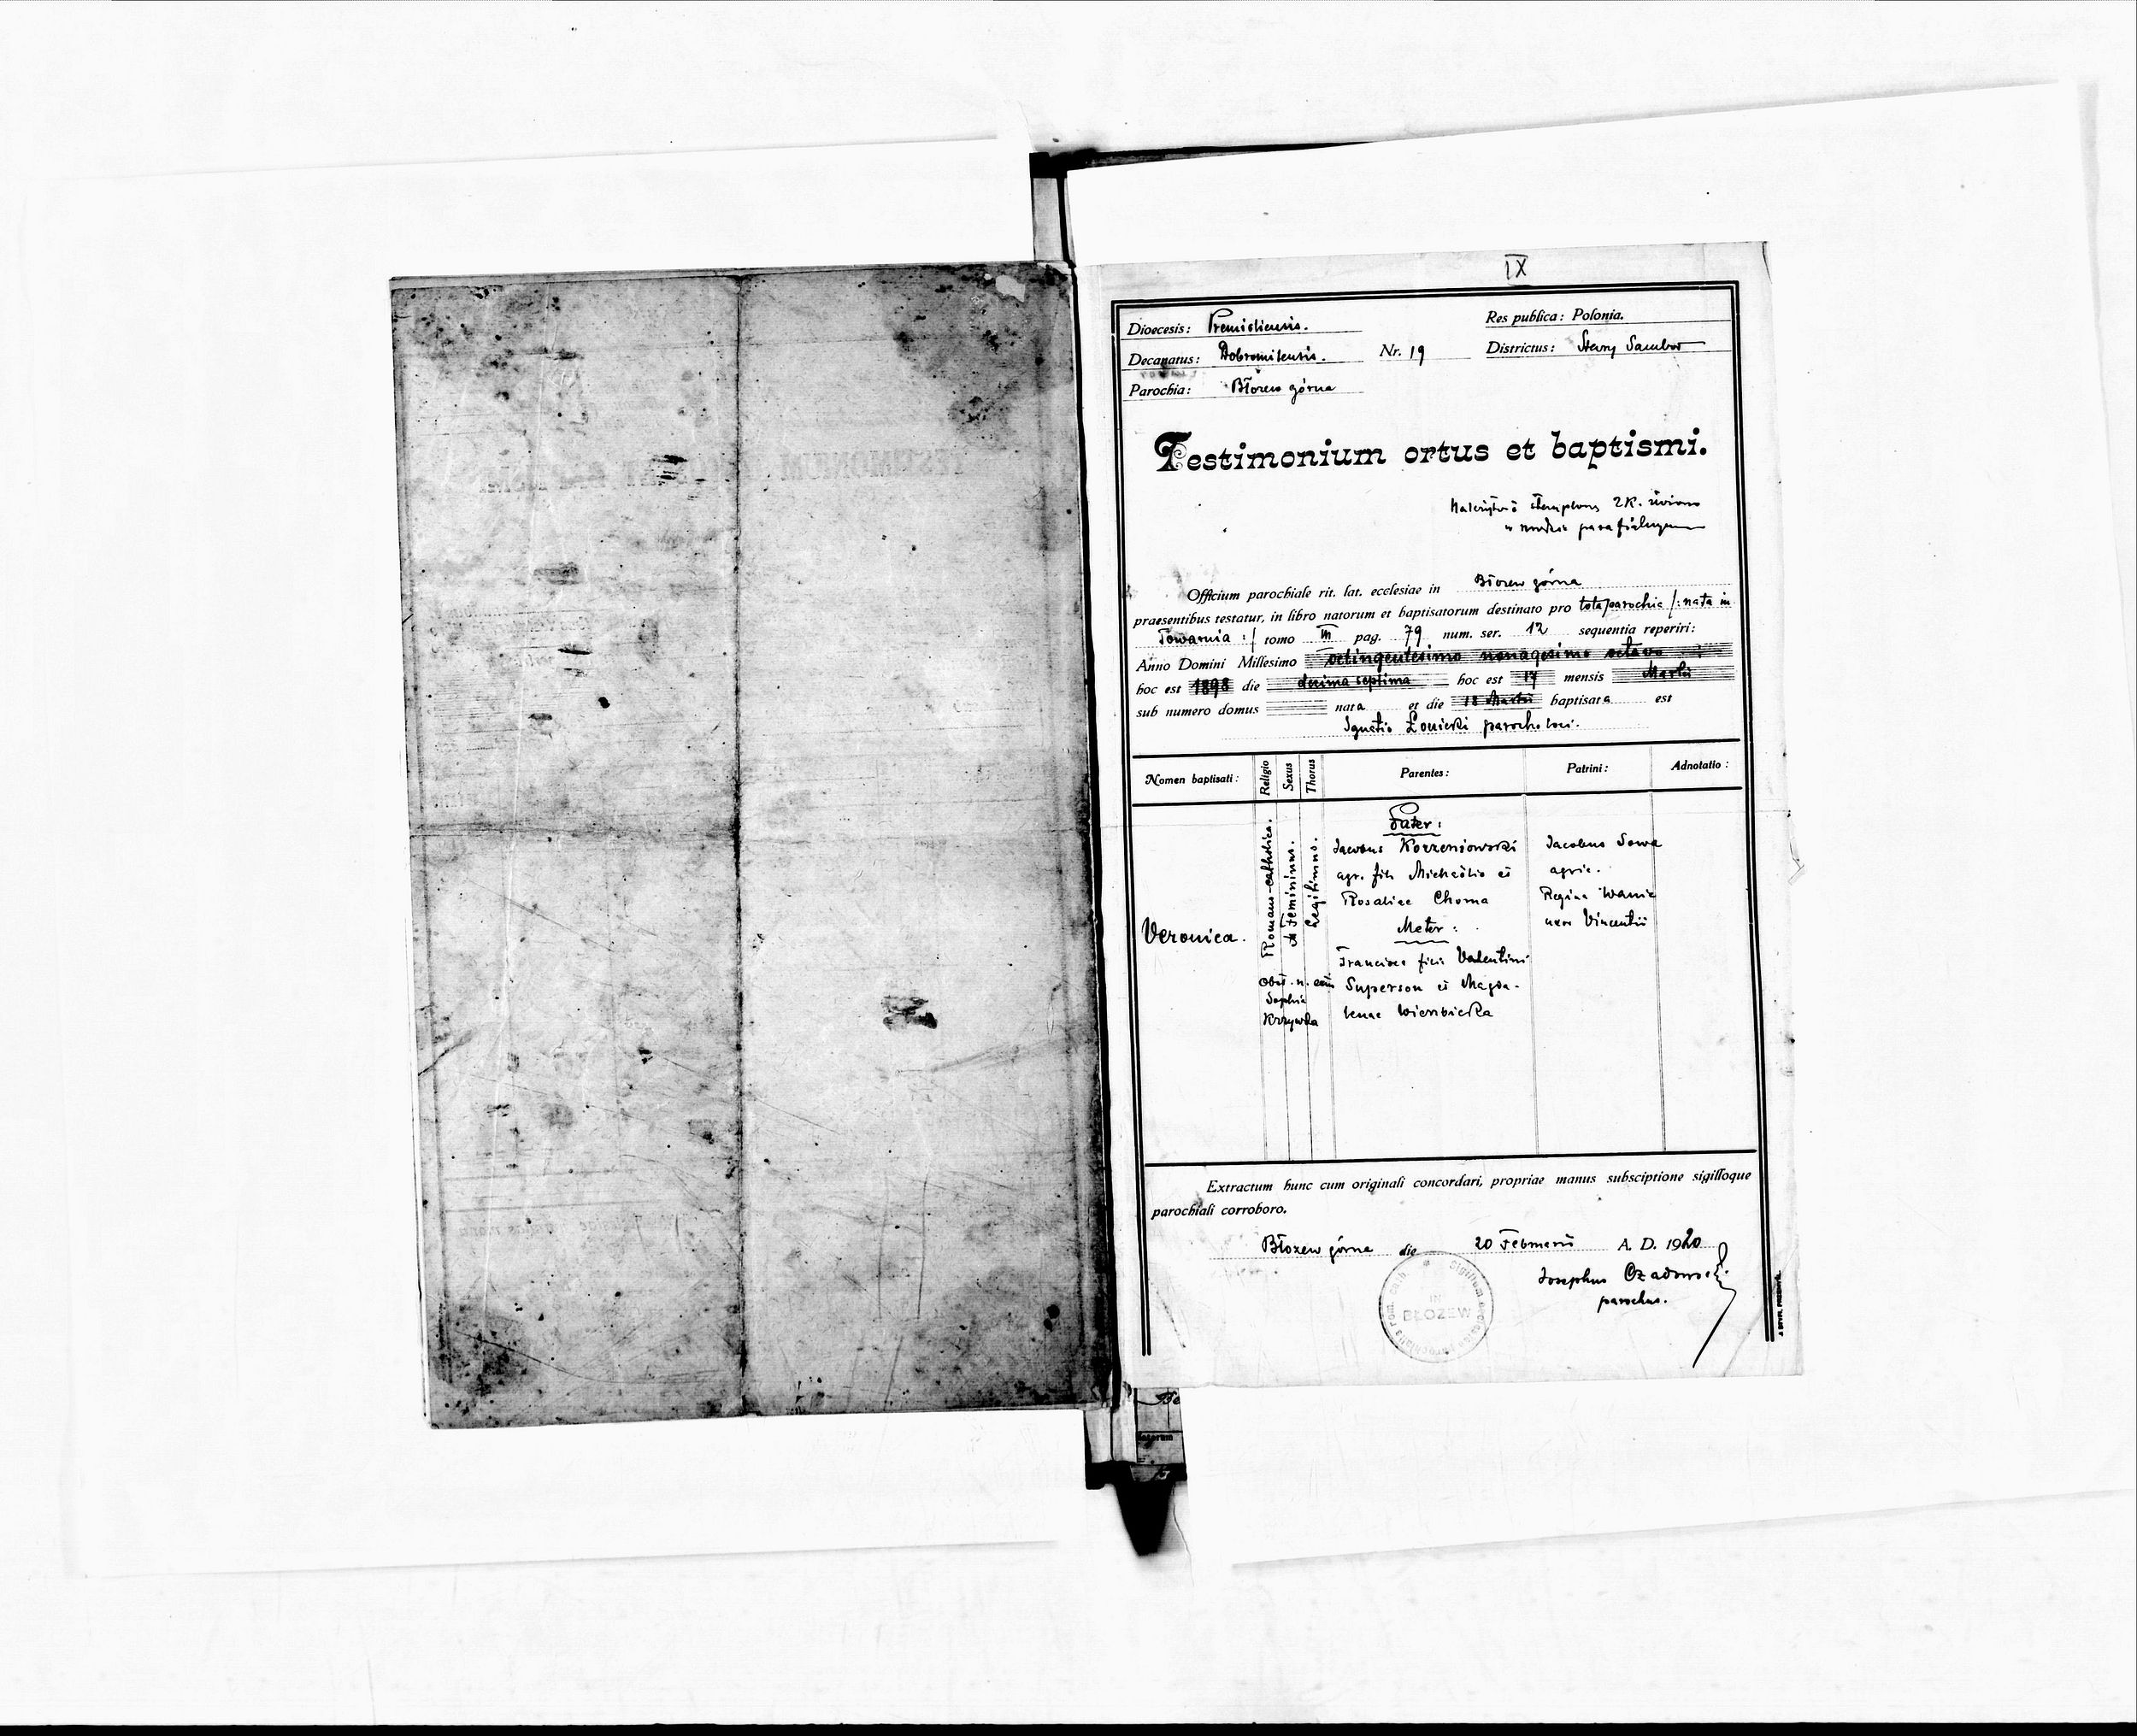 IX
Dioecesis: Premisliensis.
Res publica: Polonia.
Decanatus: Dobromilensis.
Nr. 19
Districtus: Stary Sambor
Parochia: Błozew górna
Testimonium ortus et baptismi.
Należytość stemplową 2K. uiszczono
parafialnym
Officium parochiale rit. lat. ecclesiae in Błozew górna
praesentibus testatur, in libro natorum et baptisatorum destinato pro tota parochia /: nata in
Towarnia :/ tomo III pag. 79 num. ser. 12 sequentia reperiri:
Anno Domini Millesimo octingentesimo nonagesimo octavo
hoc est 1898 die decima septima hoc est 17 mensis Martii
sub numero domus nata et die 18 Martii baptisata est
Ignatio Łonicki parocho loci.
Nomen baptisati:
Religio
Sexus
Thorus
Parentes:
Patrini:
Adnotatio:
Veronica.
Romano-catholica.
Femininus.
Legitimus.
Obst. n. ex.
Sophia
Krzywka
Pater:
Jacobus Korzeniowski
agr. fil. Michaëlis et
Rosaliae Choma
Mater:
Francisca filia Valentini
Superson et Magda-
lenae Wierzbicka
Jacobus Sowa
agric.
Regina Wania
uxor Vincentii
Extractum hunc cum originali concordari, propriae manus subsciptione sigilloque
parochiali corroboro.
Błozew górna die 20 Februarii A. D. 1920
Josephus
parochus.
IN
BŁOZEW